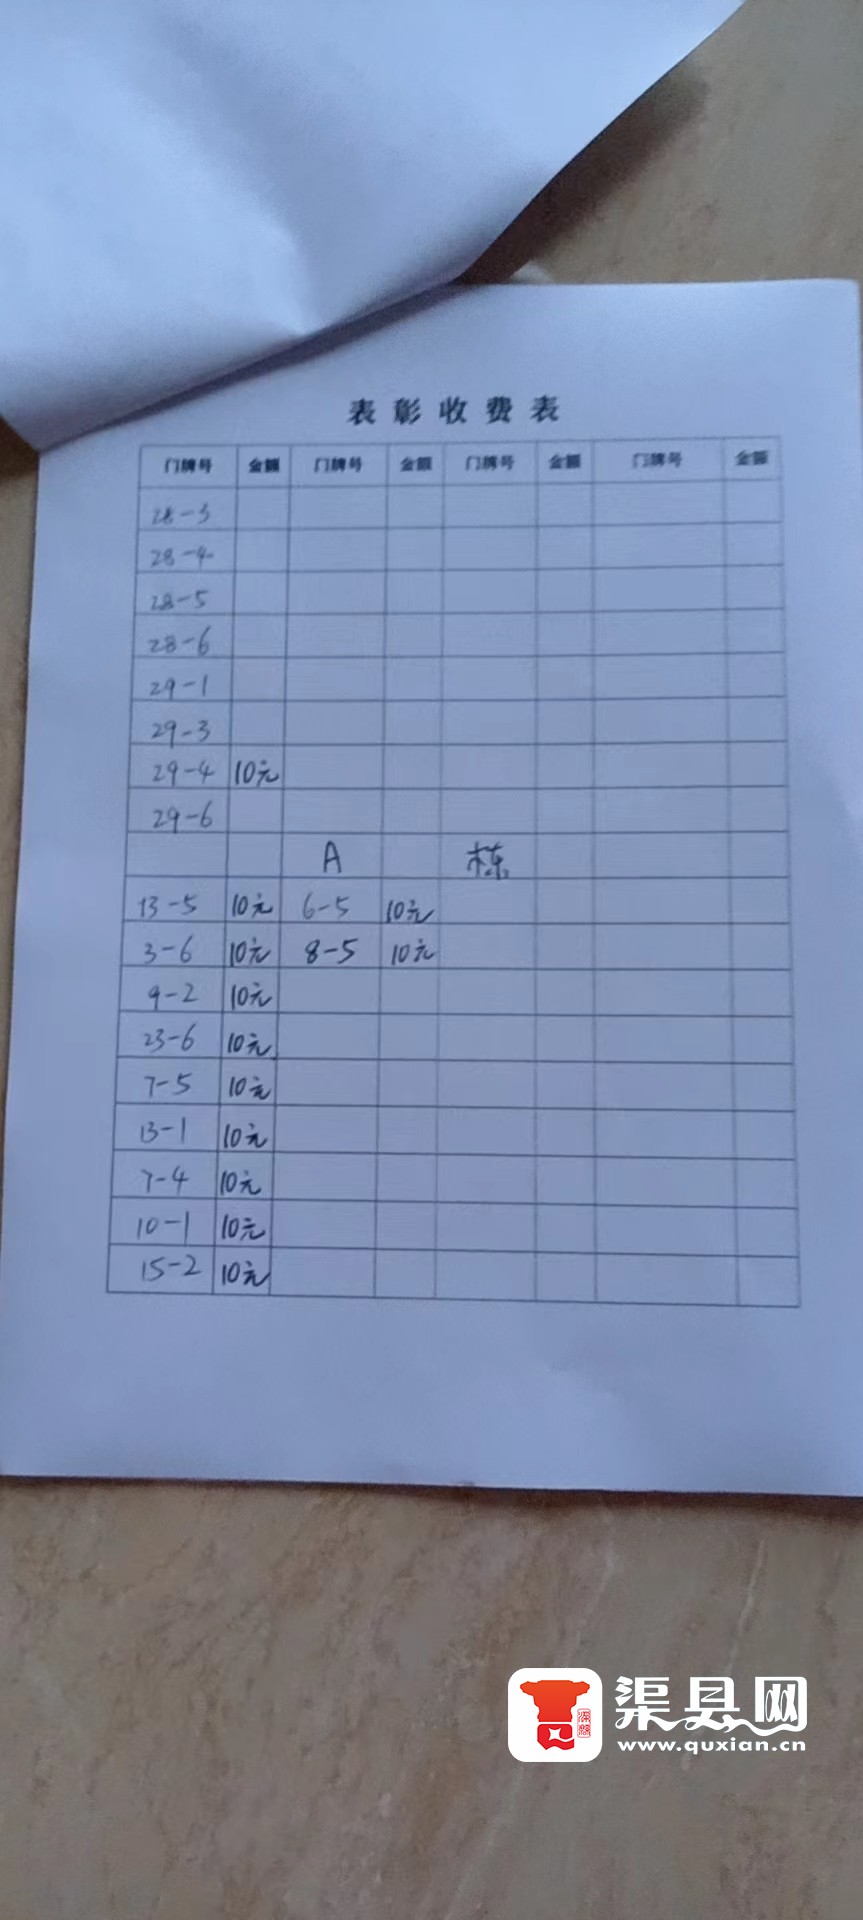 表彰收费表
门牌号 金额 门牌号 金额 门牌号 金额 门牌号 金额
28-3
28-4
28-5
28-6
29-1
29-3
29-4 10元
29-6
A 栋
13-5 10元 6-5 10元
3-6 10元 8-5 10元
9-2 10元
23-6 10元
7-5 10元
13-1 10元
7-4 10元
10-1 10元
15-2 10元
渠县网
www.quxian.cn